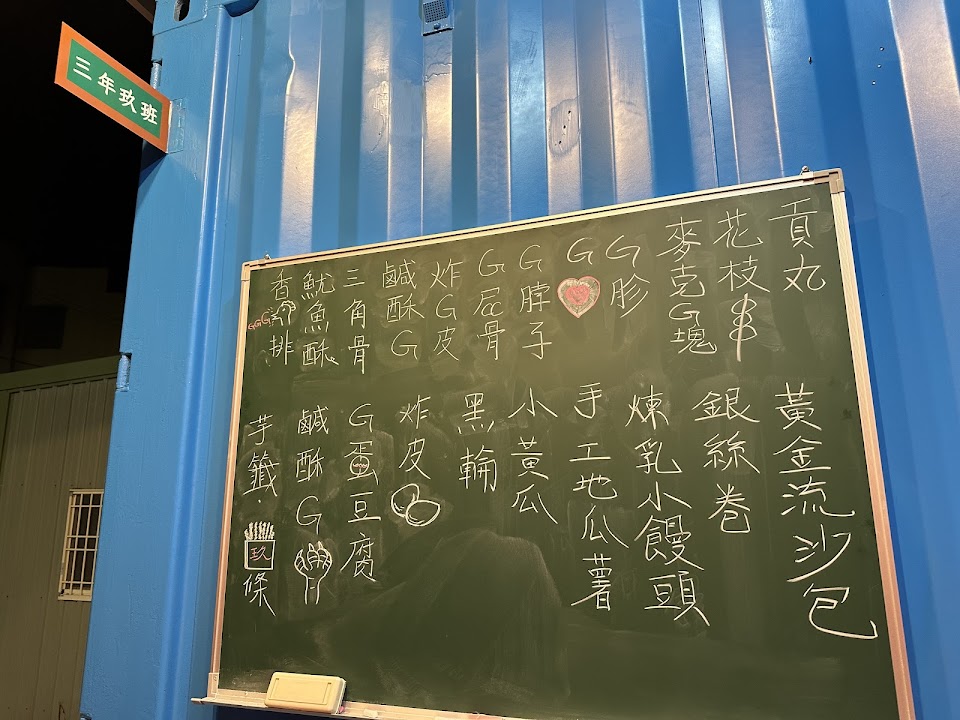 三年玖班
貢丸
花枝串
麥克G塊
G胗
G
G脖子
G屁骨
炸G皮
鹹酥G
三角骨
魷魚酥
香GGG排
黃金流沙包
銀絲卷
煉乳小饅頭
手工地瓜薯
小黃瓜
黑輪
炸皮
G蛋豆腐
鹹酥G
芋籤.玖條